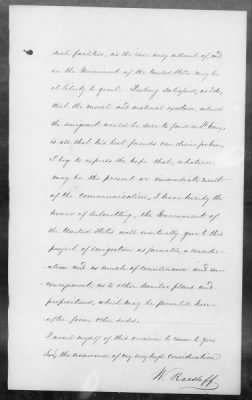 such facilities, as the case may admit of, and
as the Government of the United States may be
at liberty to grant. Feeling satisfied, as I do,
that the moral and material welfare, which
the emigrant would be sure to find in St. Croix,
is all that his best friends can desire for him,
I beg to express the hope that, whatever
may be the present or immediate result
of the communication, I have hereby the
honor of submitting, the Government of
the United States will eventually give to this
project of emigration as favorable a consider-
ation and as much of countenance and en-
couragement, as to other similar plans and
propositions, which may be presented here-
after from other sides.
I avail myself of this occasion to renew to you
Sir, the assurance of my very high consideration
W. Raasløff